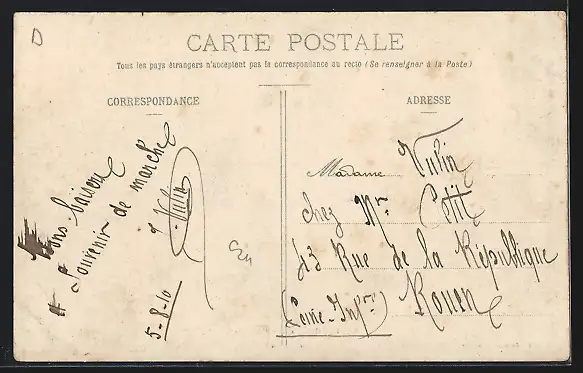 D
CARTE POSTALE
Tous les pays étrangers n'acceptent pas la correspondance au recto (Se renseigner à la Poste)
CORRESPONDANCE
Bons baisers
Souvenir de marche
J. Vulin
5-8-10
ADRESSE
Madame Vulin
chez Mr Petit
43 Rue de la République
Rouen
(Seine-Infre)